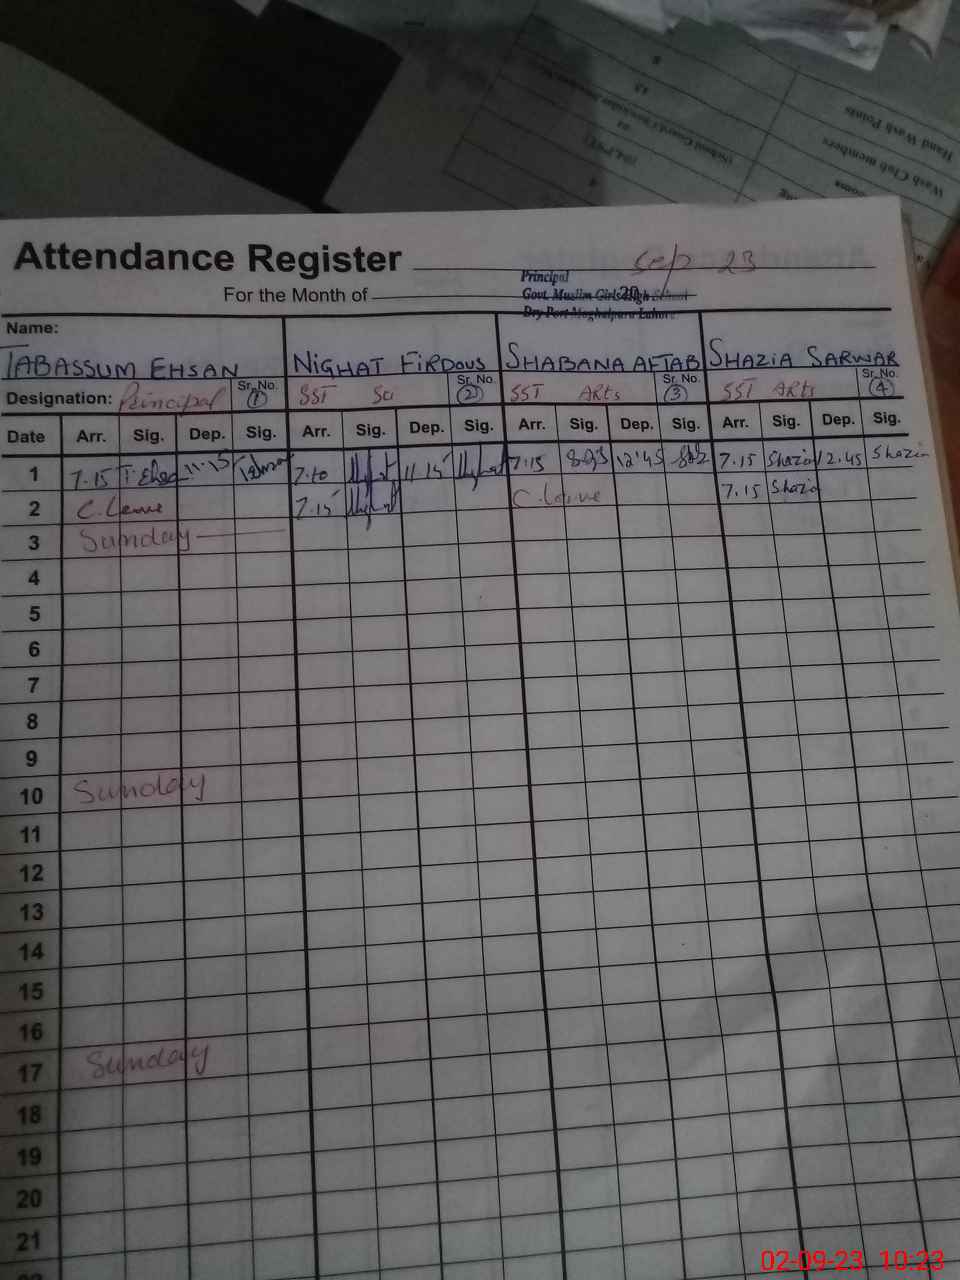 Hand Wash Points
Wash Club members
8
Attendance Register
Sep 23
Principal
For the Month of
Govt. Muslim Girls High School
20
Dry Port Moghalpura Lahore
Name:
TABASSUM EHSAN NIGHAT FIRDOUS SHABANA AFTAB SHAZIA SARWAR
Sr. No. Sr. No. Sr. No. Sr. No.
Designation: Principal 1 SST Sci 2 SST ARts 3 SST ARts 4
Date Arr. Sig. Dep. Sig. Arr. Sig. Dep. Sig. Arr. Sig. Dep. Sig. Arr. Sig. Dep. Sig.
1 7.15 T.Ehsan 11.15 7.10 11.15 7.15 12.45 7.15 Shazia 12.45 Shazia
2 C. Leave 7.15 C. Leave 7.15 Shazia
3 Sunday
4
5
6
7
8
9
10 Sunday
11
12
13
14
15
16
17 Sunday
18
19
20
21
02-09-23 10:23